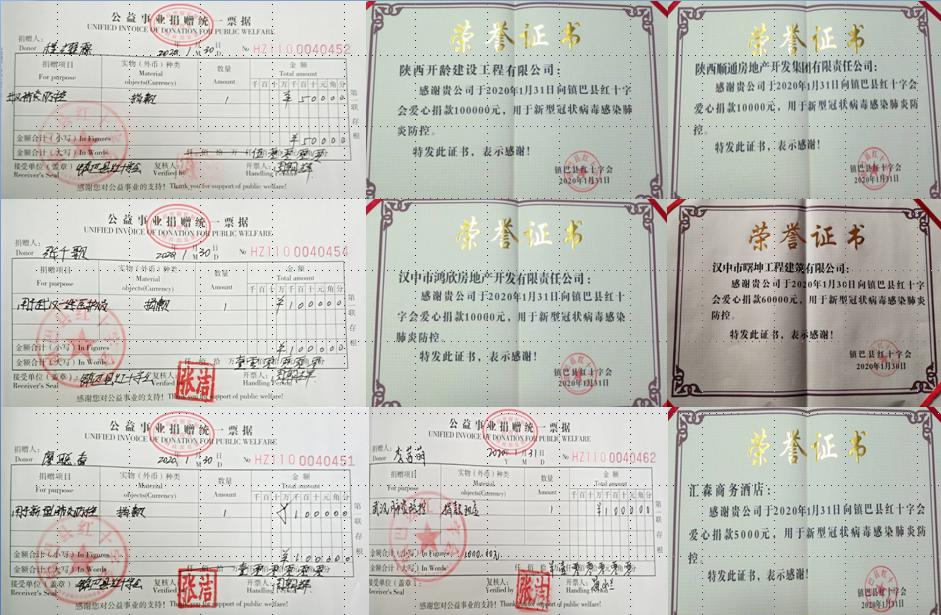 公益事业捐赠统一票据
UNIFIED INVOICE OF DONATION FOR PUBLIC WELFARE
捐赠人:
Donor
2020 1 30
Y M D
№ HZ110 0040452
捐赠项目
For purpose
实物(外币)种类
Material
objects(Currency)
数量
Amount
金额
Total amount
千百十万千百十元角分
捐款
1
¥50000
第一联存根
金额合计(小写)In Figures
¥50000
金额合计(大写)In Words
接受单位(盖章)
Receiver's Seal
镇巴县红十字会
复核人:
Verified by
开票人:
Handling Person
感谢您对公益事业的支持! Thank you for support of public welfare!
荣誉证书
陕西开龄建设工程有限公司:
感谢贵公司于2020年1月31日向镇巴县红十字
会爱心捐款100000元,用于新型冠状病毒感染肺
炎防控。
特发此证书,表示感谢!
镇巴县红十字会
2020年1月31日
荣誉证书
陕西顺通房地产开发集团有限责任公司:
感谢贵公司于2020年1月31日向镇巴县红十字
会爱心捐款10000元,用于新型冠状病毒感染肺炎
防控。
特发此证书,表示感谢!
镇巴县红十字会
2020年1月31日
公益事业捐赠统一票据
UNIFIED INVOICE OF DONATION FOR PUBLIC WELFARE
捐赠人:
Donor
2020 1 30
Y M D
№ HZ110 0040454
捐赠项目
For purpose
实物(外币)种类
Material
objects(Currency)
数量
Amount
金额
Total amount
千百十万千百十元角分
捐款
1
¥100000
第一联存根
金额合计(小写)In Figures
¥100000
金额合计(大写)In Words
接受单位(盖章)
Receiver's Seal
镇巴县红十字会
复核人:
Verified by
张洁
开票人:
Handling Person
感谢您对公益事业的支持! Thank you for support of public welfare!
荣誉证书
汉中市鸿欣房地产开发有限责任公司:
感谢贵公司于2020年1月31日向镇巴县红十
字会爱心捐款10000元,用于新型冠状病毒感染
肺炎防控。
特发此证书,表示感谢!
镇巴县红十字会
2020年1月31日
荣誉证书
汉中市曙坤工程建筑有限公司:
感谢贵公司于2020年1月30日向镇巴县红十字
会爱心捐款60000元,用于新型冠状病毒感染肺炎
防控。
特发此证书,表示感谢!
镇巴县红十字会
2020年1月30日
公益事业捐赠统一票据
UNIFIED INVOICE OF DONATION FOR PUBLIC WELFARE
捐赠人:
Donor
2020 1 30
Y M D
№ HZ110 0040451
捐赠项目
For purpose
实物(外币)种类
Material
objects(Currency)
数量
Amount
金额
Total amount
千百十万千百十元角分
用于新型肺炎防控
捐款
1
¥100000
第一联存根
金额合计(小写)In Figures
¥100000
金额合计(大写)In Words
接受单位(盖章)
Receiver's Seal
镇巴县红十字会
复核人:
Verified by
张洁
开票人:
Handling Person
感谢您对公益事业的支持! Thank you for support of public welfare!
公益事业捐赠统一票据
UNIFIED INVOICE OF DONATION FOR PUBLIC WELFARE
捐赠人:
Donor
2020 1 31
Y M D
№ HZ110 0040462
捐赠项目
For purpose
实物(外币)种类
Material
objects(Currency)
数量
Amount
金额
Total amount
千百十万千百十元角分
武汉肺炎防控
1
¥100000
第一联存根
金额合计(小写)In Figures
金额合计(大写)In Words
接受单位(盖章):
Receiver's Seal
复核人:
Verified by
张洁
开票人:
Handling Person
感谢您对公益事业的支持! Thank you for support of public welfare!
荣誉证书
汇森商务酒店:
感谢贵公司于2020年1月31日向镇巴县红十字
会爱心捐款5000元,用于新型冠状病毒感染肺炎防
控。
特发此证书,表示感谢!
镇巴县红十字会
2020年1月31日